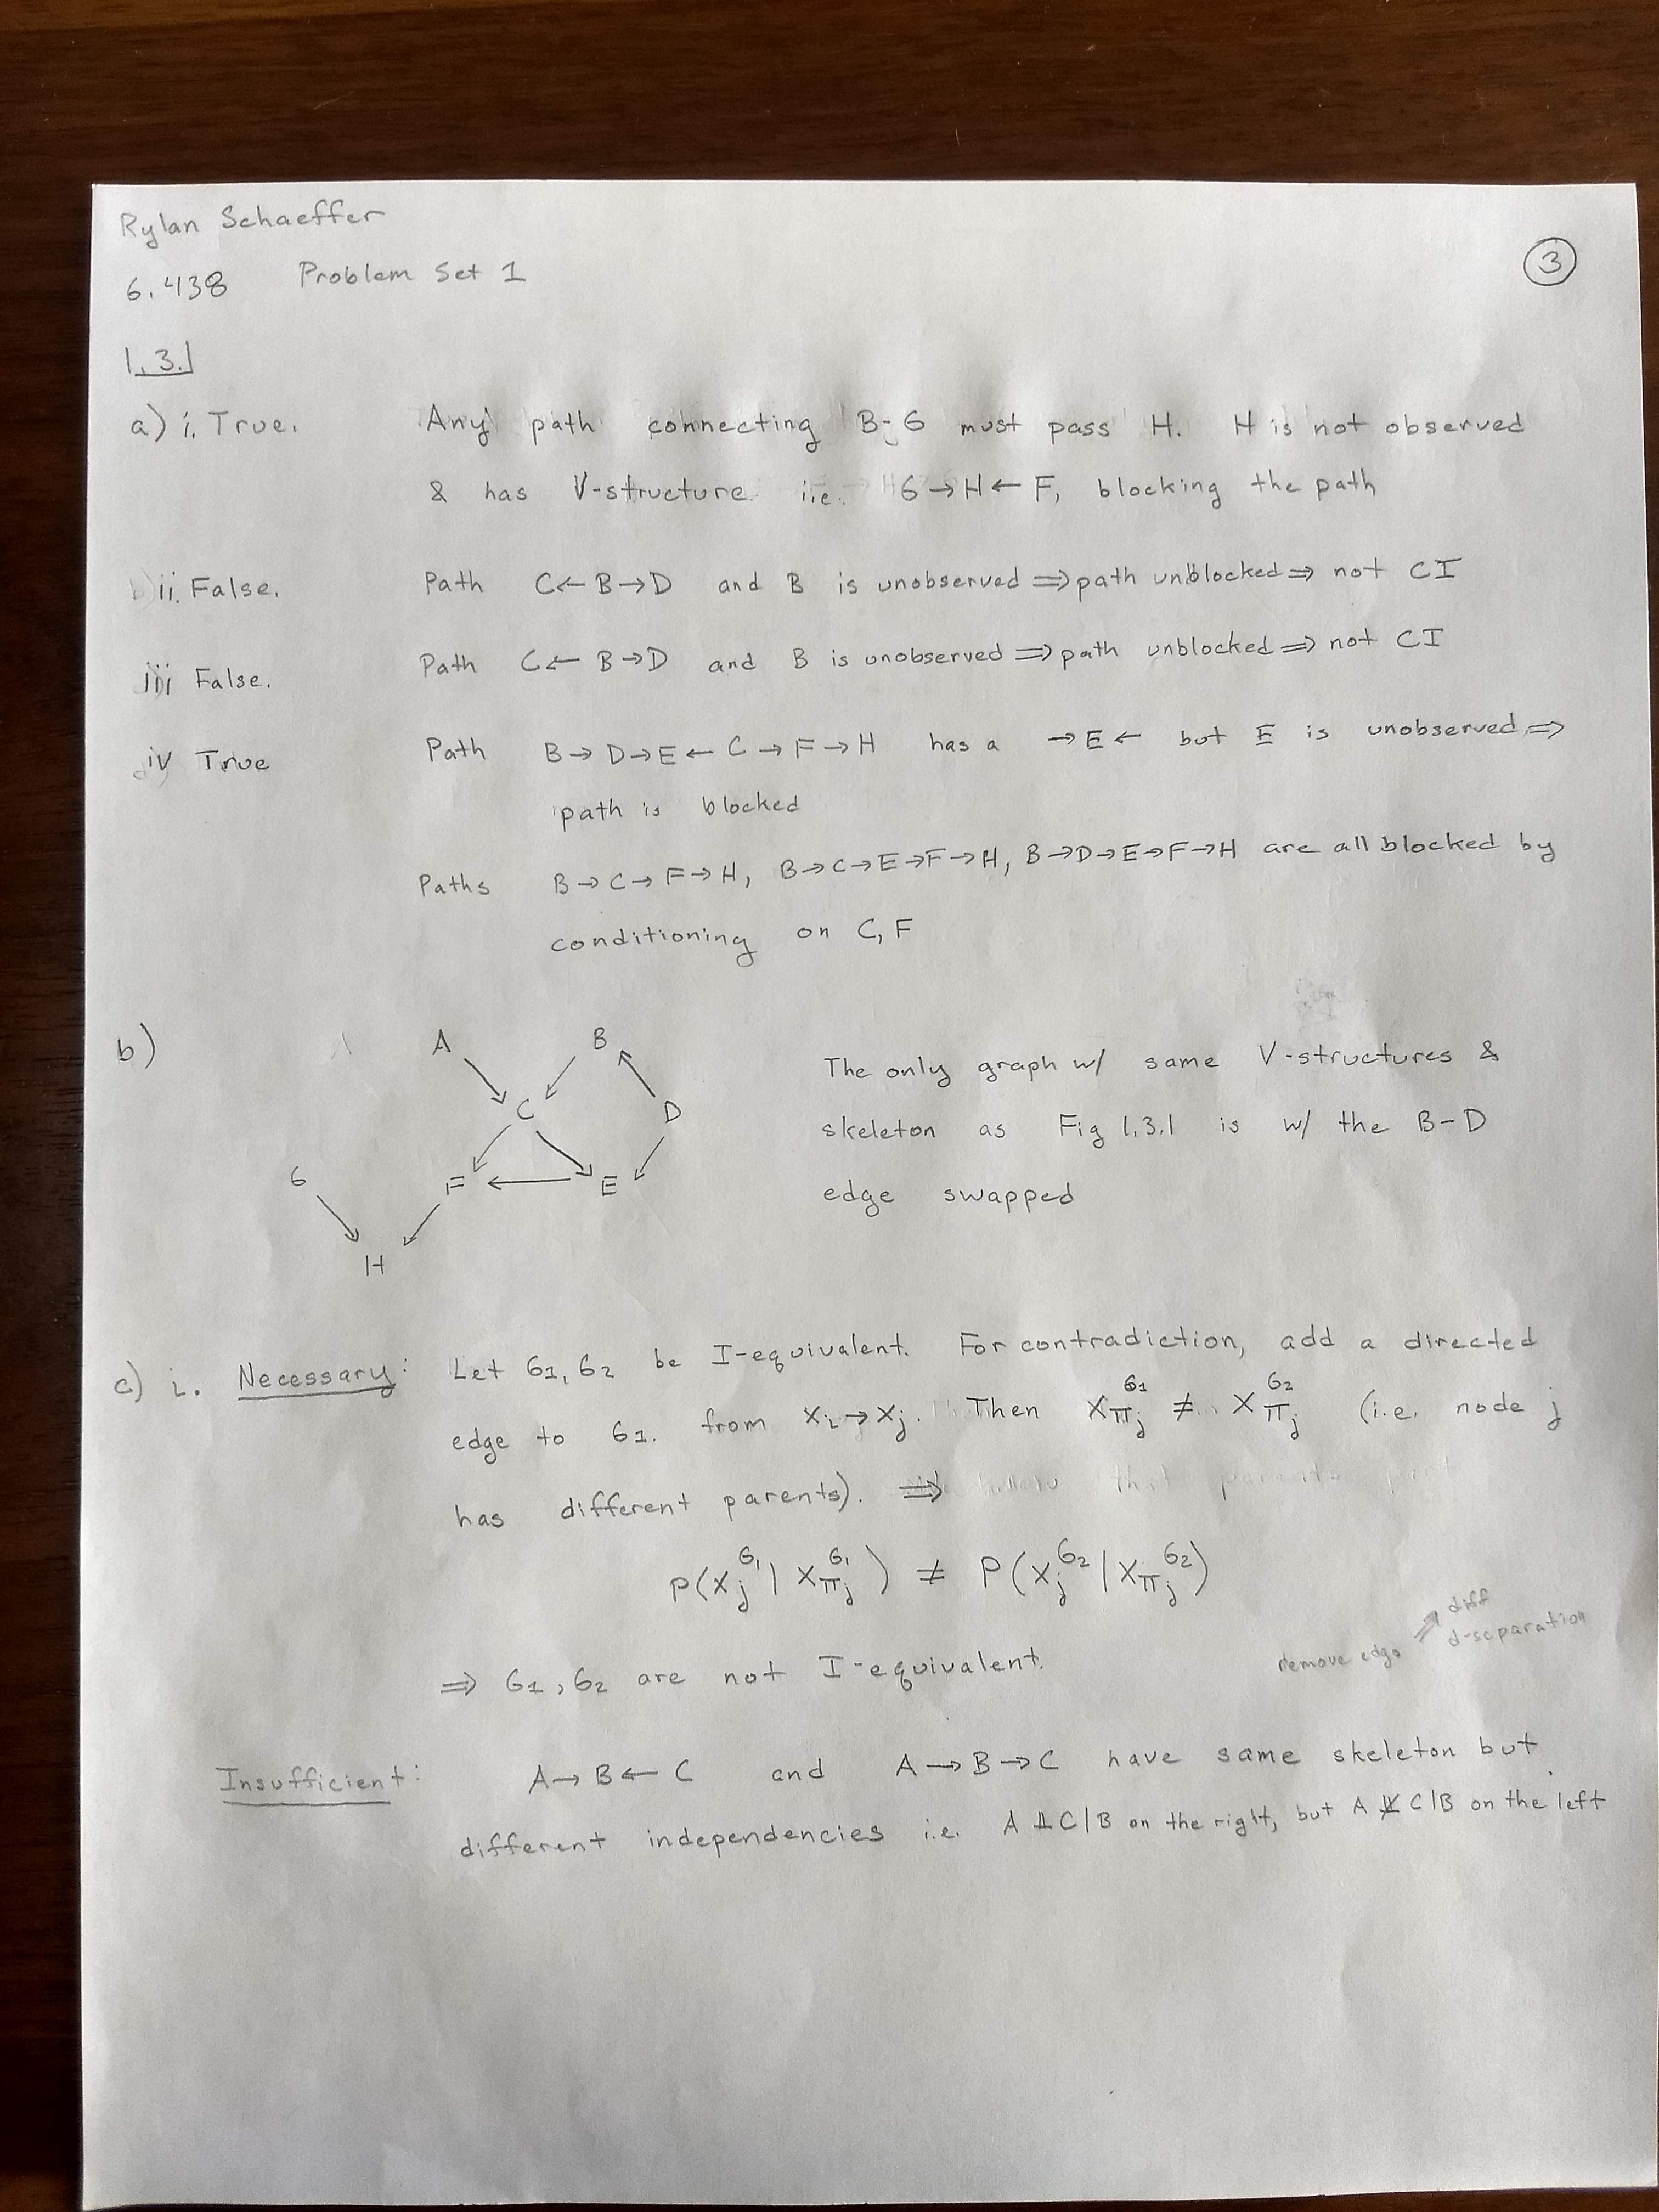 Rylan Schaeffer
3
6.438 Problem Set 1
1.3.1
a) i. True. Any path connecting B-G must pass H. H is not observed
& has V-structure i.e. G → H ← F, blocking the path
ii. False. Path C ← B → D and B is unobserved ⇒ path unblocked ⇒ not CI
iii False. Path C ← B → D and B is unobserved ⇒ path unblocked ⇒ not CI
iv True Path B → D → E ← C → F → H has a → E ← but E is unobserved ⇒
path is blocked
Paths B → C → F → H, B → C → E → F → H, B → D → E → F → H are all blocked by
conditioning on C, F
b) A B
The only graph w/ same V-structures &
C D
skeleton as Fig 1.3.1 is w/ the B-D
G F E
edge swapped
H
c) i. Necessary: Let G1, G2 be I-equivalent. For contradiction, add a directed
edge to G1. from Xi → Xj. Then X_πj^G1 ≠ X_πj^G2 (i.e. node j
has different parents). ⇒ that parents
P(X_j^G1 | X_πj^G1) ≠ P(X_j^G2 | X_πj^G2)
remove edge ⇒ diff
d-separation
⇒ G1, G2 are not I-equivalent.
Insufficient: A → B ← C and A → B → C have same skeleton but
different independencies i.e. A ⊥⊥ C|B on the right, but A ⊥̸⊥ C|B on the left